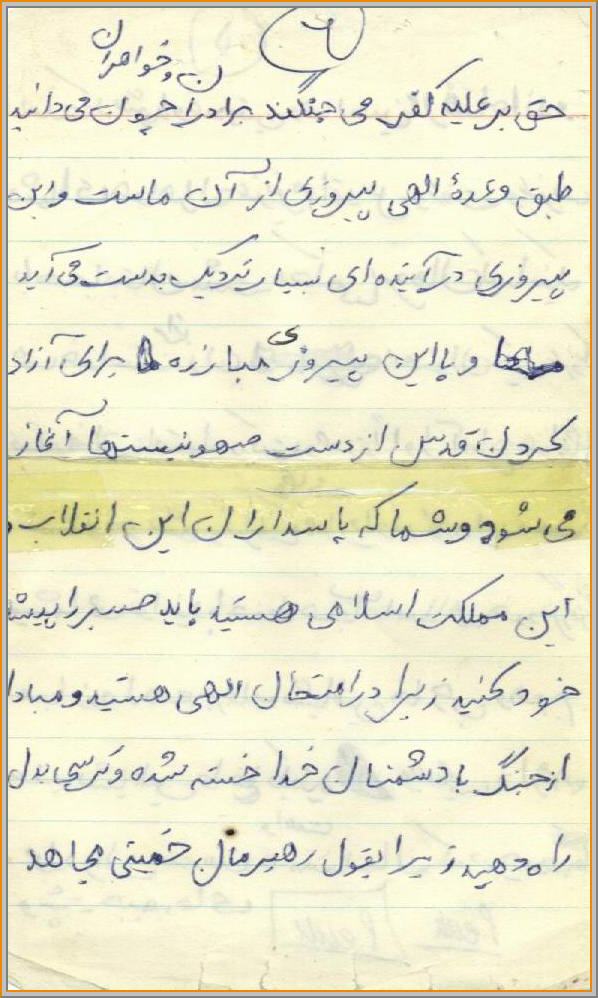 ۶
ن و خواهران
حق بر علیه کفر می جنگند برادرا چون می دانید
طبق وعدهٔ الهی پیروزی از آن ماست و این
پیروزی در آینده ای بسیار نزدیک بدست می آید
و با این پیروزی مبارزه ما برای آزاد
کردن قدس از دست صهونیستها آغاز
می شود و شما که پاسداران این انقلاب و
این مملکت اسلامی هستید باید صبر را پیشه
خود کنید زیرا در امتحان الهی هستید و مبادا
از جنگ با دشمنان خدا خسته شده و ترسی بدل
راه دهید زیرا بقول رهبرمان خمینی مجاهد